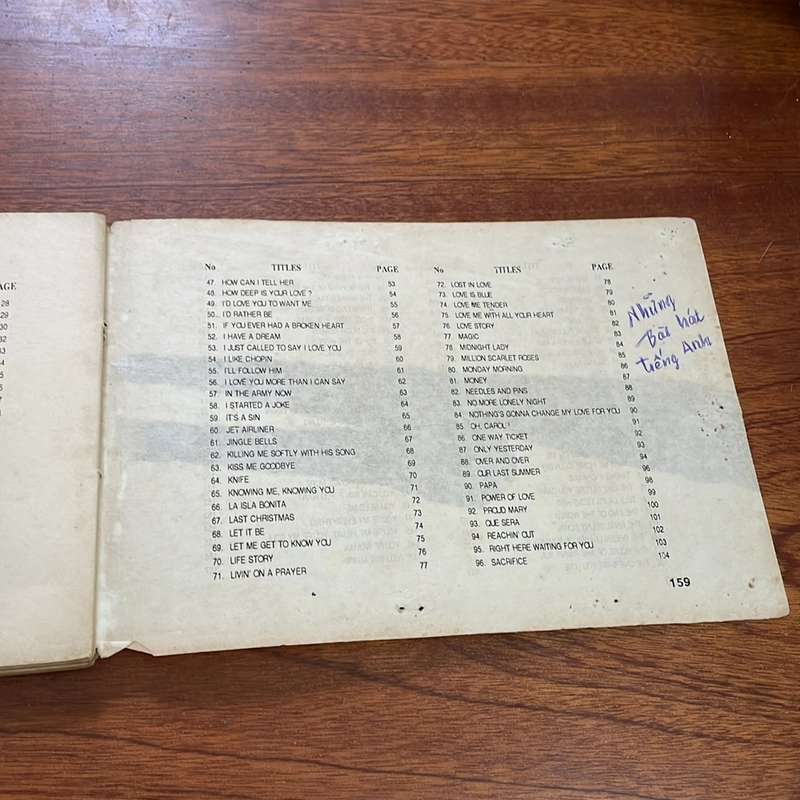 AGE
28
29
30
32
33
No TITLES PAGE
47. HOW CAN I TELL HER 53
48. HOW DEEP IS YOUR LOVE ? 54
49. I'D LOVE YOU TO WANT ME 55
50. I'D RATHER BE 56
51. IF YOU EVER HAD A BROKEN HEART 57
52. I HAVE A DREAM 58
53. I JUST CALLED TO SAY I LOVE YOU 59
54. I LIKE CHOPIN 60
55. I'LL FOLLOW HIM 61
56. I LOVE YOU MORE THAN I CAN SAY 62
57. IN THE ARMY NOW 63
58. I STARTED A JOKE 64
59. IT'S A SIN 65
60. JET AIRLINER 66
61. JINGLE BELLS 67
62. KILLING ME SOFTLY WITH HIS SONG 68
63. KISS ME GOODBYE 69
64. KNIFE 70
65. KNOWING ME, KNOWING YOU 71
66. LA ISLA BONITA 72
67. LAST CHRISTMAS 73
68. LET IT BE 74
69. LET ME GET TO KNOW YOU 75
70. LIFE STORY 76
71. LIVIN' ON A PRAYER 77
No TITLES PAGE
72. LOST IN LOVE 78
73. LOVE IS BLUE 79
74. LOVE ME TENDER 80
75. LOVE ME WITH ALL YOUR HEART 81
76 LOVE STORY 82
77. MAGIC 83
78. MIDNIGHT LADY 84
79. MILLION SCARLET ROSES 85
80. MONDAY MORNING 86
81. MONEY 87
82. NEEDLES AND PINS 88
83. NO MORE LONELY NIGHT 89
84 NOTHING'S GONNA CHANGE MY LOVE FOR YOU 90
85. OH, CAROL ! 91
86. ONE WAY TICKET 92
87. ONLY YESTERDAY 93
88. OVER AND OVER 94
89. OUR LAST SUMMER 96
90. PAPA 98
91. POWER OF LOVE 99
92. PROUD MARY 100
93. QUE SERA 101
94. REACHIN' OUT 102
95. RIGHT HERE WAITING FOR YOU 103
96. SACRIFICE 104
Những
Bài hát
tiếng Anh
159